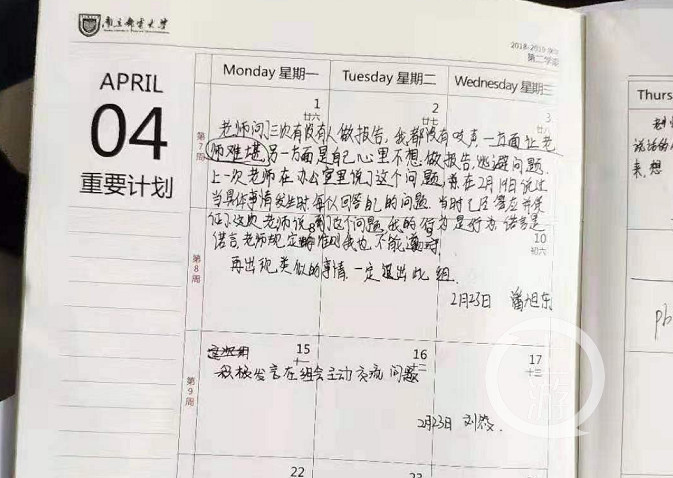 南京邮电大学
2018-2019
第二学期
APRIL
04
重要计划
Monday 星期一
Tuesday 星期二
Wednesday 星期三
Thurs
1
廿六
2
廿七
3
廿八
第7周
老师问了三次有没有人做报告,我都没有吱声,一方面让老
师难堪,另一方面是自己心里不想做报告,逃避问题.
上一次老师在办公室里说了这个问题,并在2月19日说过
当具体事情发生时每人回答自己的问题.当时已经答应并
这次老师说到这个问题,我的行为是行为,诺言是
诺言,老师规定的准则我也不能遵守.
10
初六
第8周
再出现类似的事情,一定退出此组.
2月23日 潘旭东
15
十一
16
十二
17
十三
第9周
积极发言在组会主动交流问题
2月23日 刘
22
23
来,想
ph